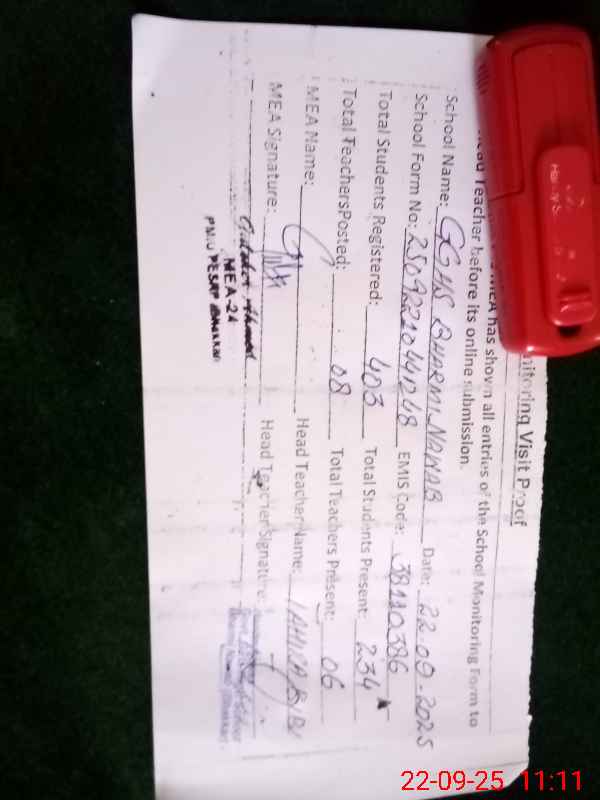 nitoring Visit Proof
MEA has shown all entries of the School Monitoring Form to
Head Teacher before its online submission.
School Name: GGHS BHARMI NAWAB Date: 22.09.2025
School Form No: EMIS Code: 38110386
Total Students Registered: 403 Total Students Present: 234
Total TeachersPosted: 08 Total Teachers Present: 06
MEA Name: Head Teacher Name: BIBI
MEA Signature: Head Teacher Signature:
Ahmed
MEA-24
PMIU PESRP Bhakkar
22-09-25 11:11